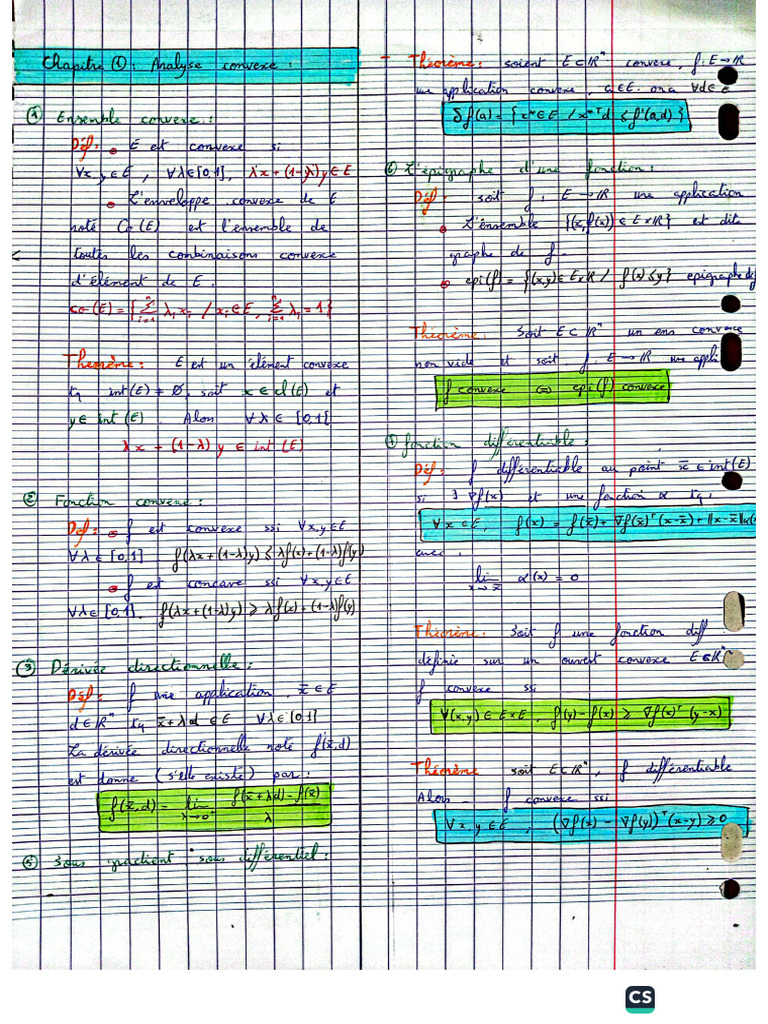 Chapitre ① : Analyse convexe :
① Ensemble convexe :
Déf : • E est convexe si
∀x,y∈E, ∀λ∈[0,1], λx+(1-λ)y∈E
• L'enveloppe convexe de E
noté Co(E) est l'ensemble de
toutes les combinaisons convexe
d'élément de E.
co(E) = { Σⁿᵢ₌₁ λᵢxᵢ / xᵢ∈E, Σⁿᵢ₌₁ λᵢ=1 }
Théorème : E est un élément convexe
tq int(E) ≠ Ø, soit x∈cl(E) et
y∈ int(E). Alors ∀λ∈[0,1[
λx + (1-λ)y ∈ int(E)
② Fonction convexe :
Def : • f est convexe ssi ∀x,y∈E
∀λ∈[0,1] f(λx+(1-λ)y) ≤ λf(x)+(1-λ)f(y)
• f est concave ssi ∀x,y∈E
∀λ∈[0,1]. f(λx+(1-λ)y) ≥ λf(x)+(1-λ)f(y)
③ Dérivée directionnelle :
Déf : f une application, x̄∈E
d∈ℝⁿ tq x̄+λd∈E ∀λ∈[0,1]
La dérivée directionnelle noté f'(x̄,d)
est donne (s'elle existe) par :
f'(x̄,d) = lim λ→0⁺ f(x̄+λd)-f(x̄) / λ
⑤ Sous gradient "sous différentiel :
- Théorème : soient E⊂ℝⁿ convexe, f:E→ℝ
une application convexe, a∈E. on a ∀d∈E
δf(a) = { x*∈E / x*ᵀd ≤ f'(a,d) }
⑥ L'épigraphe d'une fonction :
Déf : soit f : E→ℝ une application
• L'ensemble {(x,f(x))∈E×ℝ} est dite
graphe de f.
• epi(f) = {(x,y)∈E×ℝ / f(x)≤y} epigraphe de
Théorème. Soit E⊂ℝⁿ un ens convexe
non vide et soit f:E→ℝ une appli
f convexe ⇔ epi(f) convexe
① fonction différentiable :
Déf : f différentiable au point x̄∈int(E)
si ∃ ∇f(x̄) et une fonction α tq.
∀x∈E, f(x) = f(x̄)+∇f(x̄)ᵀ(x-x̄)+‖x-x̄‖α(
avec.
lim x→x̄ α(x) = 0
Théorème. Soit f une fonction diff
définie sur un ouvert convexe E⊂ℝⁿ
f convexe ssi
∀(x,y)∈E×E, f(y)-f(x) ≥ ∇f(x)ᵀ(y-x)
Théorème soit E⊂ℝⁿ, f différentiable
Alors - f convexe ssi
∀x,y∈E, (∇f(x)-∇f(y))ᵀ(x-y) ≥ 0
CS